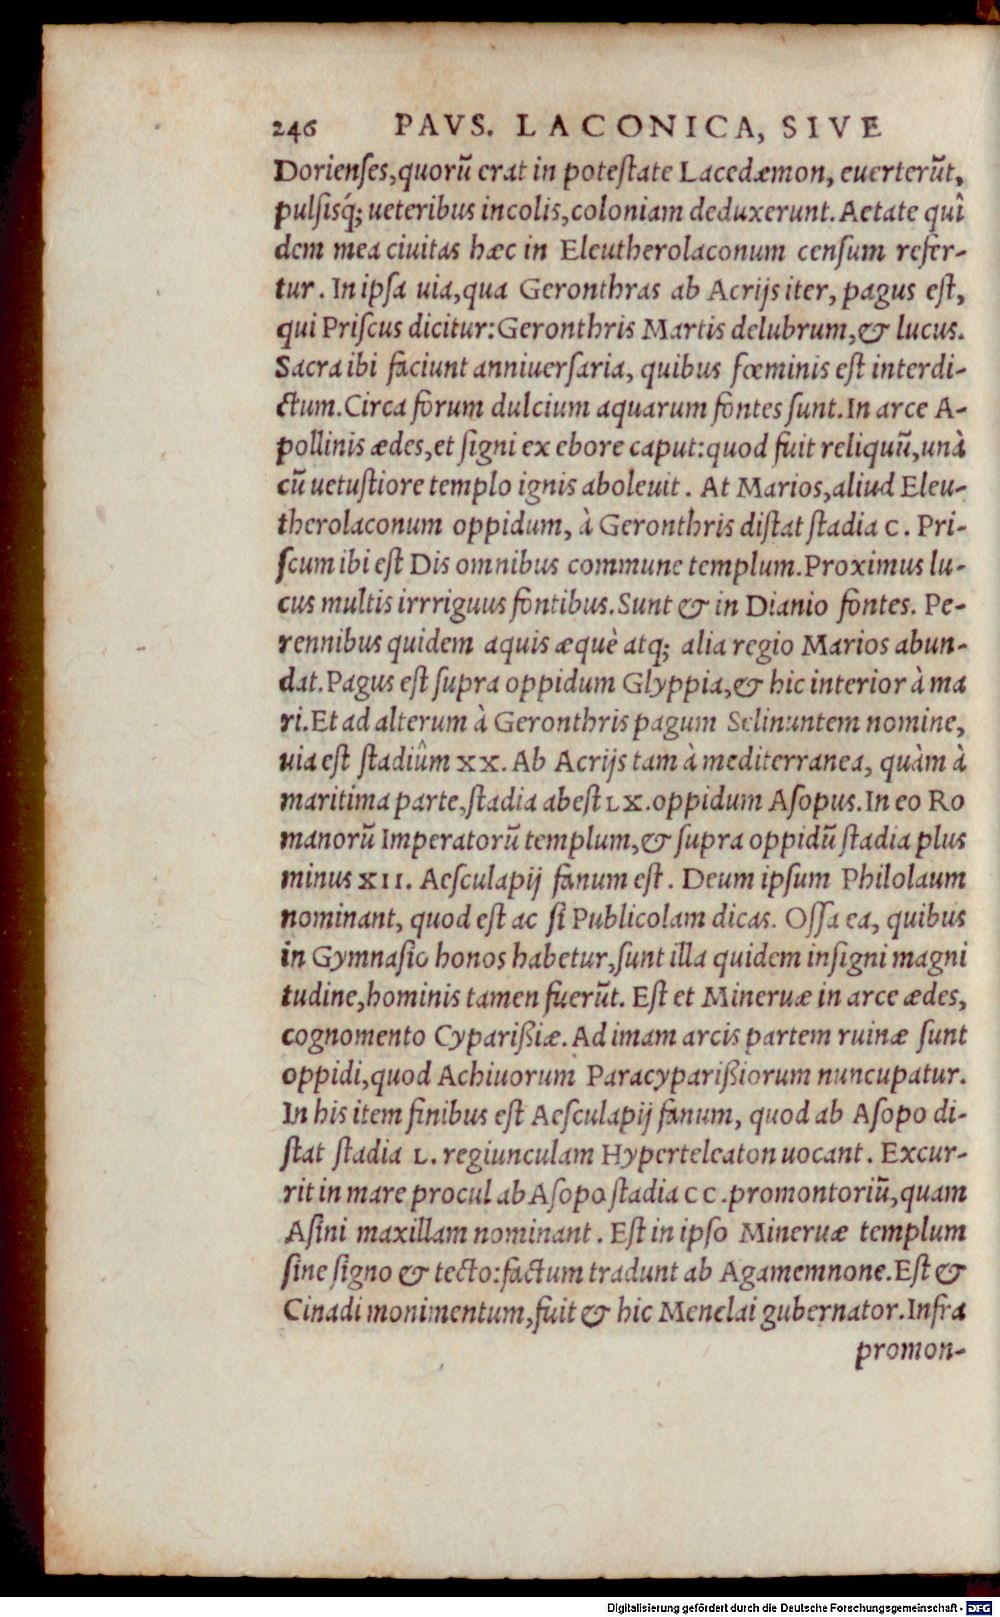 246 PAVS. LACONICA, SIVE
Dorienses,quorũ erat in potestate Lacedæmon, euerterũt,
pulsisq́; ueteribus incolis,coloniam deduxerunt. Aetate quî
dem mea ciuitas hæc in Eleutherolaconum censum refer-
tur. In ipsa uia,qua Geronthras ab Acrijs iter, pagus est,
qui Priscus dicitur:Geronthris Martis delubrum,& lucus.
Sacra ibi faciunt anniuersaria, quibus fœminis est interdi-
ctum.Circa forum dulcium aquarum fontes sunt.In arce A-
pollinis ædes,et signi ex ebore caput:quod fuit reliquũ,unà
cũ uetustiore templo ignis aboleuit. At Marios,aliud Eleu-
therolaconum oppidum, à Geronthris distat stadia C. Pri-
scum ibi est Dis omnibus commune templum.Proximus lu-
cus multis irrriguus fontibus.Sunt & in Dianio fontes. Pe-
rennibus quidem aquis æquè atq; alia regio Marios abun-
dat.Pagus est supra oppidum Glyppia,& hic interior à ma
ri.Et ad alterum à Geronthris pagum Selinuntem nomine,
uia est stadiûm XX. Ab Acrijs tam à mediterranea, quàm à
maritima parte,stadia abest LX.oppidum Asopus.In eo Ro
manorũ Imperatorũ templum,& supra oppidũ stadia plus
minus XII. Aesculapij fanum est. Deum ipsum Philolaum
nominant, quod est ac si Publicolam dicas. Ossa ea, quibus
in Gymnasio honos habetur,sunt illa quidem insigni magni
tudine,hominis tamen fuerũt. Est et Mineruæ in arce ædes,
cognomento Cyparißiæ. Ad imam arcis partem ruinæ sunt
oppidi,quod Achiuorum Paracyparißiorum nuncupatur.
In his item finibus est Aesculapij fanum, quod ab Asopo di-
stat stadia L. regiunculam Hyperteleaton uocant. Excur-
rit in mare procul ab Asopo stadia CC.promontoriũ,quam
Asini maxillam nominant. Est in ipso Mineruæ templum
sine signo & tecto:factum tradunt ab Agamemnone.Est &
Cinadi monimentum,fuit & hic Menelai gubernator.Infra
promon-
Digitalisierung gefördert durch die Deutsche Forschungsgemeinschaft - DFG